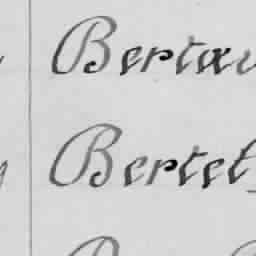 Bertau
Bertet